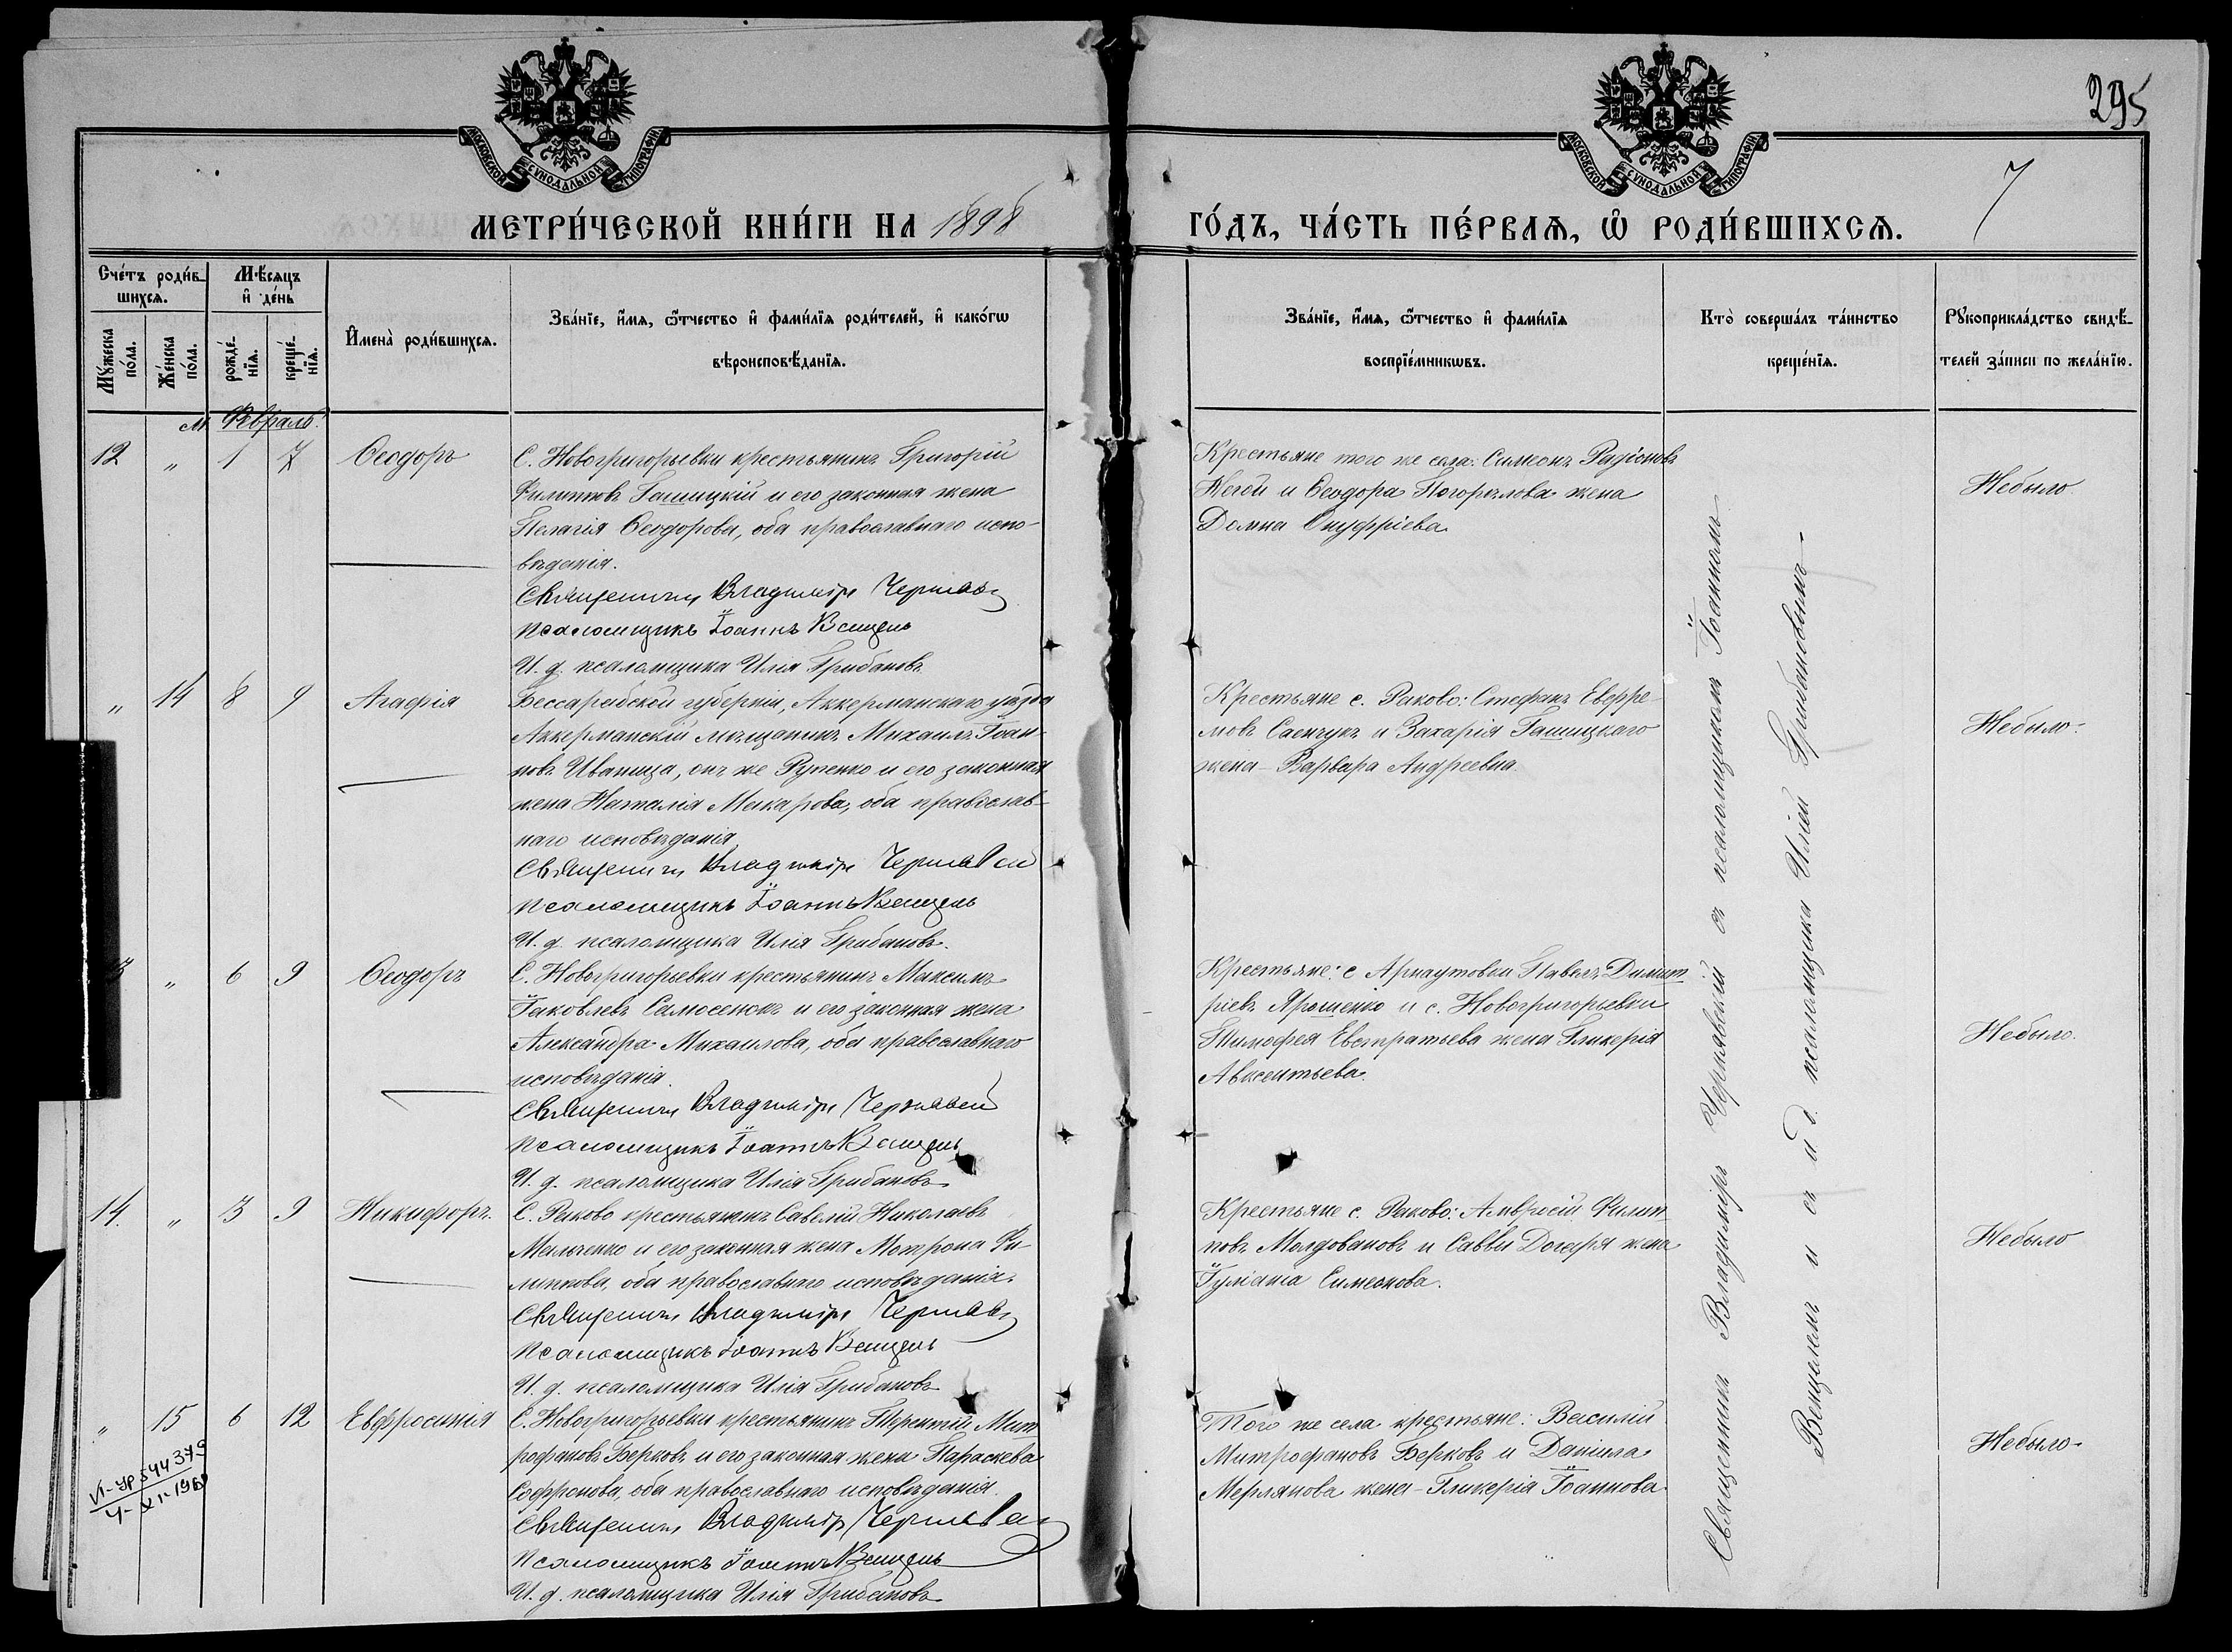 295
7
МОСКОВСКОЙ СѴНОДАЛЬНОЙ ТИПОГРАФІИ
МОСКОВСКОЙ СѴНОДАЛЬНОЙ ТИПОГРАФІИ
МЕТРИ́ЧЕСКОЙ КНИ́ГИ НА 1898 ГО́ДЪ, ЧА́СТЬ ПЕ́РВАѦ, Ѡ҆ РОДИ́ВШИХСѦ.
Сче́тъ роди́в-
шихсѧ.
Мꙋ́жеска по́ла.
Же́нска по́ла.
Мѣ́сѧцъ
и҆ де́нь
рожде́-
нїѧ.
креще́-
нїѧ.
И҆мена̀ роди́вшихсѧ.
Зва́нїе, и҆́мѧ, ѻ҆́тчество и҆ фами́лїѧ роди́телей, и҆ како́гѡ
вѣроисповѣ́данїѧ.
Зва́нїе, и҆́мѧ, ѻ҆́тчество и҆ фами́лїѧ
воспрїе́мникѡвъ.
Кто̀ соверша́лъ та́инство
креще́нїѧ.
Рꙋкоприкла́дство свидѣ́-
телей за́писи по жела́нїю.
м. Февраль.
12 " 1 7 Ѳеодоръ
С. Новогригорьевки крестьянинъ Григорій
Филиповъ Гашицкій и его законная жена
Пелагія Ѳеодорова, оба православнаго испо-
вѣданія.
Священникъ Владиміръ Чернявс
Псаломщикъ Іоаннъ Венцель
И. д. псаломщика Илія Грибановъ
Крестьяне того же села: Симеонъ Радіоновъ
и Ѳеодора Погорѣлова жена
Домна Онуфріева
Небыло
" 14 8 9 Агафія
Бессарабской губерніи, Аккерманскаго уѣзда
Аккерманскій мѣщанинъ Михаилъ Іоан-
новъ Иваница, онъ же Руненко и его законная
жена Наталія Макарова, оба православ-
наго исповѣданія
Священникъ Владиміръ Чернявскій
Псаломщикъ Іоаннъ Венцель
И. д. псаломщика Илія Грибановъ.
Крестьяне с. Раково: Стефанъ Евфре-
мовъ Саенчукъ и Захарія Гашицкаго
жена - Варвара Андреевна.
Небыло.
" 6 9 Ѳеодоръ
С. Новогригорьевки крестьянинъ Максимъ
Іаковлевъ Самосенокъ и его законная жена
Александра Михаилова, оба православнаго
исповѣданія.
Священникъ Владиміръ Чернявскій
Псаломщикъ Іоаннъ Венцель
И. д. псаломщика Илія Грибановъ
Крестьяне: с Арнаутовки Павелъ Димит
ріевъ Ярошенко и с. Новогригорьевки
Тимофея Евстратьева жена Гликерія
Авксентьева.
Небыло.
14. " 3 9 Никифоръ.
С. Раково крестьянинъ Савелій Николаевъ
Мальченко и его законная жена Мотрона Фи-
липпова, оба православнаго исповѣданія.
Священникъ Владиміръ Чернявс
Псаломщикъ Іоаннъ Венцель
И. д. псаломщика Илія Грибановъ
Крестьяне с. Раково: Амвросій Филип
повъ Молдовановъ и Саввы Догаря жена
Іуліанія Симеонова.
Небыло
" 15 6 12 Евфросинія
С. Новогригорьевки крестьянинъ Терентій Мит
рофановъ Берковъ и его законная жена Параскева
Софронова, оба православнаго исповѣданія.
Священникъ Владиміръ Чернявс
Псаломщикъ Іоаннъ Венцель
И. д. псаломщика Илія Грибановъ
Того же села крестьяне: Василій
Митрофановъ Берковъ и Даніила
Мерлянова жена - Гликерія Іоаннова
Небыло
VI-УР 544379
4-XI-1969
Священникъ Владиміръ Чернявскій съ псаломщикомъ Іоанномъ
Венцелемъ и съ и. д. псаломщика Иліей Грибановымъ